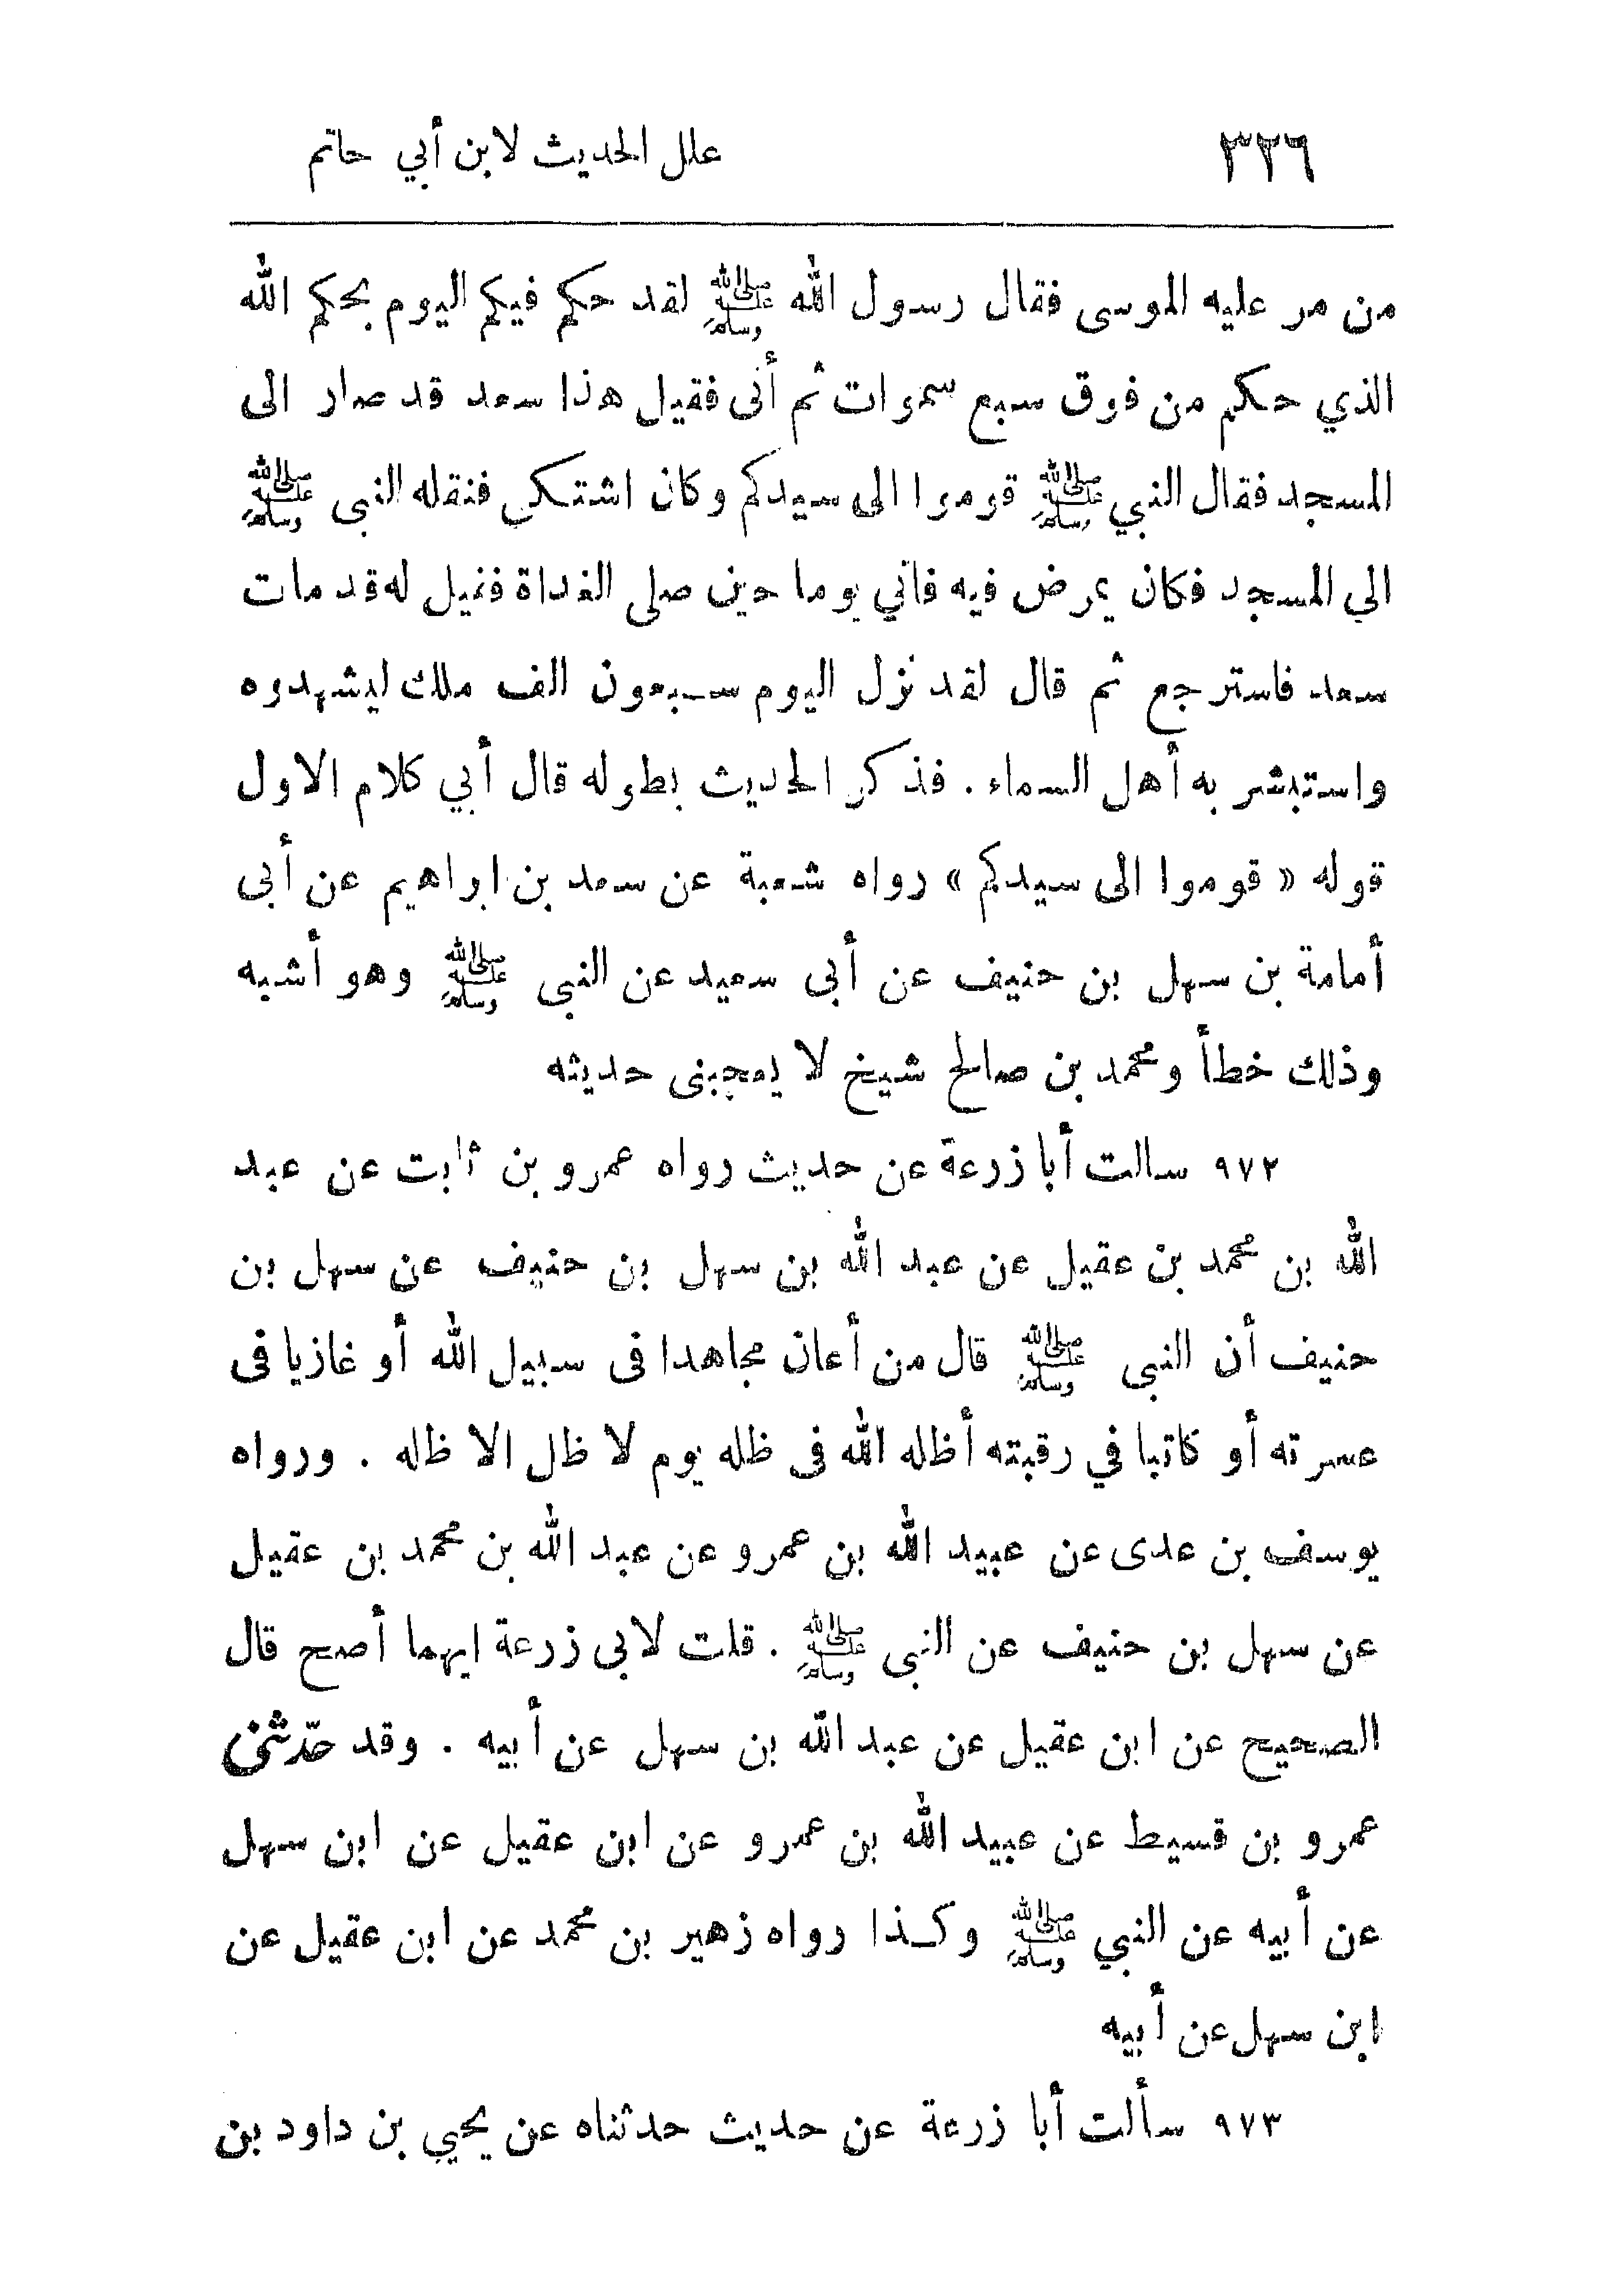 ٣٢٦ علل الحديث لابن أبي حاتم
من مر عليه الموسى فقال رسول الله ﷺ لقد حكم فيكم اليوم بحكم الله
الذي حكم من فوق سبع سموات ثم أتى فقيل هذا سعد قد صار الى
المسجد فقال النبي ﷺ قوموا الى سيدكم وكان اشتكى فنقله النبى ﷺ
الى المسجد فكان يمرض فيه فاتي يوما حين صلى الغداة فقيل له قد مات
سعد فاسترجع ثم قال لقد نزل اليوم سبعون الف ملك ليشهدوه
واستبشر به أهل السماء . فذكر الحديث بطوله قال أبي كلام الاول
قوله « قوموا الى سيدكم » رواه شعبة عن سعد بن ابراهيم عن أبى
أمامة بن سهل بن حنيف عن أبى سعيد عن النبى ﷺ وهو أشبه
وذلك خطأ ومحمد بن صالح شيخ لا يعجبنى حديثه
٩٧٢ سالت أبا زرعة عن حديث رواه عمرو بن ثابت عن عبد
الله بن محمد بن عقيل عن عبد الله بن سهل بن حنيف عن سهل بن
حنيف أن النبى ﷺ قال من أعان مجاهدا فى سبيل الله أو غازيا فى
عسرته أو كاتبا في رقبته أظله الله فى ظله يوم لا ظل الا ظله . ورواه
يوسف بن عدى عن عبيد الله بن عمرو عن عبد الله بن محمد بن عقيل
عن سهل بن حنيف عن النبى ﷺ . قلت لابى زرعة ايهما أصح قال
الصحيح عن ابن عقيل عن عبد الله بن سهل عن أبيه . وقد حدّثنى
عمرو بن قسيط عن عبيد الله بن عمرو عن ابن عقيل عن ابن سهل
عن أبيه عن النبي ﷺ وكذا رواه زهير بن محمد عن ابن عقيل عن
ابن سهل عن أبيه
٩٧٣ سألت أبا زرعة عن حديث حدثناه عن يحيي بن داود بن